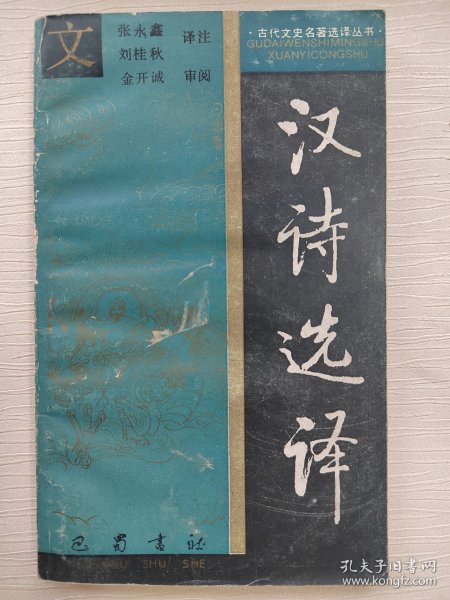 文
张永鑫
刘桂秋
译注
金开诚 审阅
·古代文史名著选译丛书·
GUDAIWENSHIMINGZHU
XUANYICONGSHU
汉诗选译
巴蜀书社
SHU SHE
孔夫子旧书网